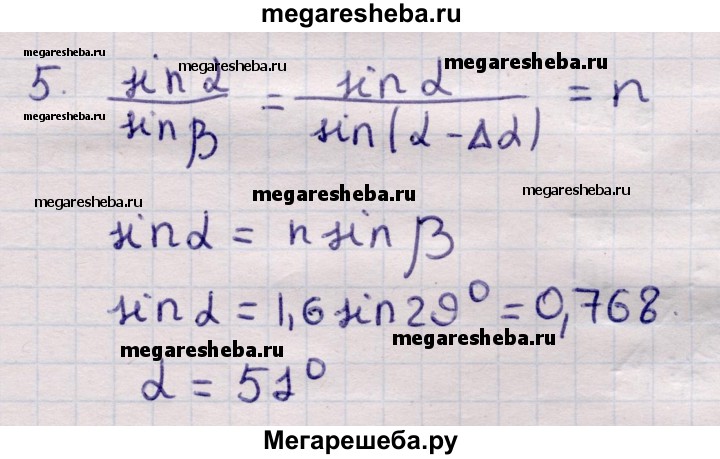 megaresheba.ru
megaresheba.ru megaresheba.ru megaresheba.ru
5. sin α / sin β = sin α / sin(α - Δα) = n
megaresheba.ru
megaresheba.ru megaresheba.ru megaresheba.ru
sin α = n sin β
sin α = 1,6 sin 29° = 0,768.
megaresheba.ru megaresheba.ru
α = 51°
Мегарешеба.ру